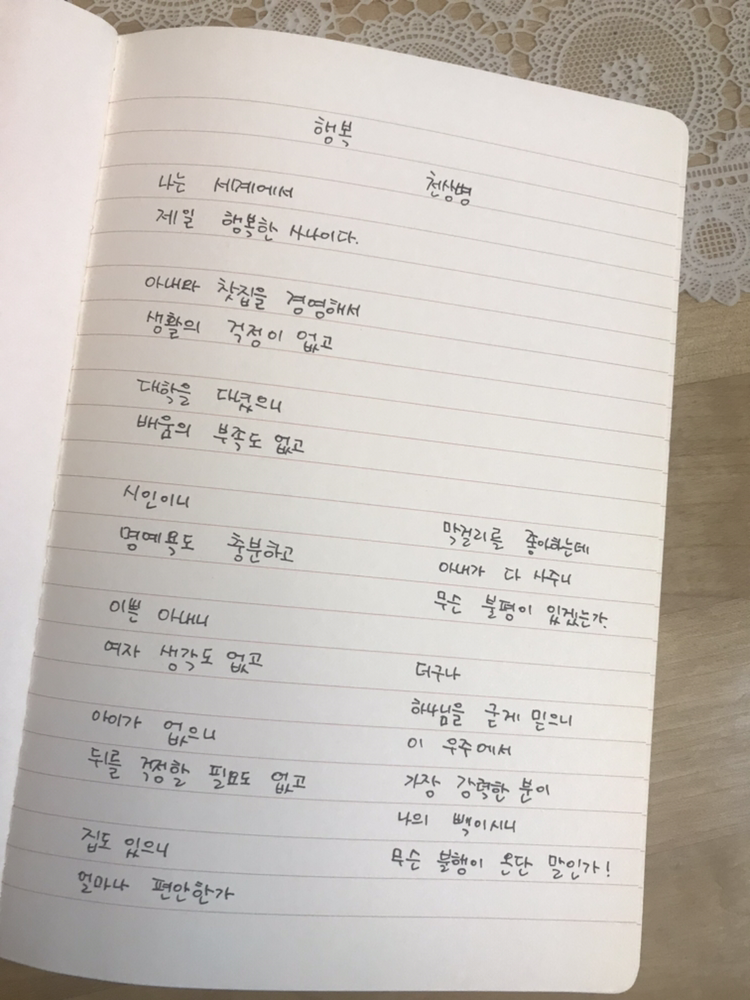 행복
천상병
나는 세계에서
제일 행복한 사나이다.
아내와 찻집을 경영해서
생활의 걱정이 없고
대학을 다녔으니
배움의 부족도 없고
시인이니
명예욕도 충분하고
이쁜 아내니
여자 생각도 없고
아이가 없으니
뒤를 걱정할 필요도 없고
집도 있으니
얼마나 편안한가
막걸리를 좋아하는데
아내가 다 사주니
무슨 불평이 있겠는가.
더구나
하나님을 굳게 믿으니
이 우주에서
가장 강력한 분이
나의 빽이시니
무슨 불행이 온단 말인가!